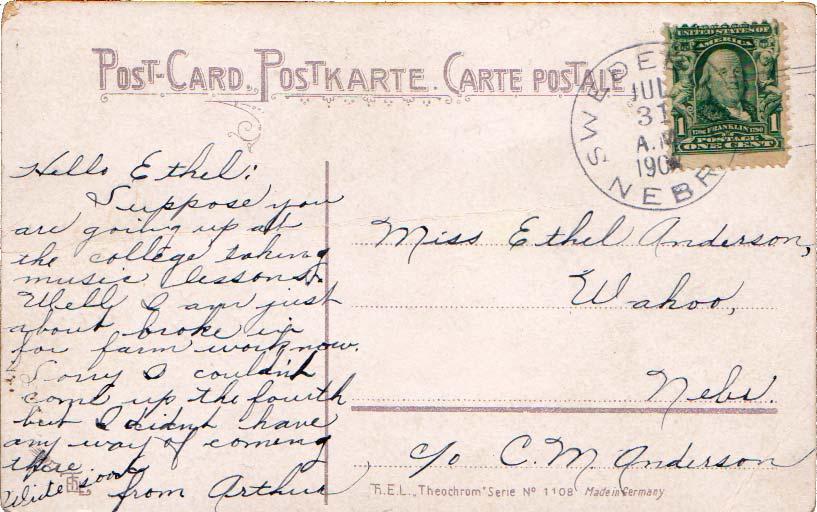 POST-CARD. POSTKARTE. CARTE POSTALE
UNITED STATES OF
AMERICA
1790 FRANKLIN 1790
1 POSTAGE 1
ONE CENT
SWEDE NEBR
JUL
31
A.M
190
Hello Ethel:
Suppose you
are going up at
the college taking
music lessons.
Well I am just
about broke in
for farm work now.
Sorry I couldnt
come up the fourth
but I didnt have
any way of comeing
there
Write soon
from Arthur
Miss Ethel Anderson,
Wahoo,
Nebr.
c/o C. M. Anderson
T.E.L. "Theochrom" Serie Nº 1108 Made in Germany